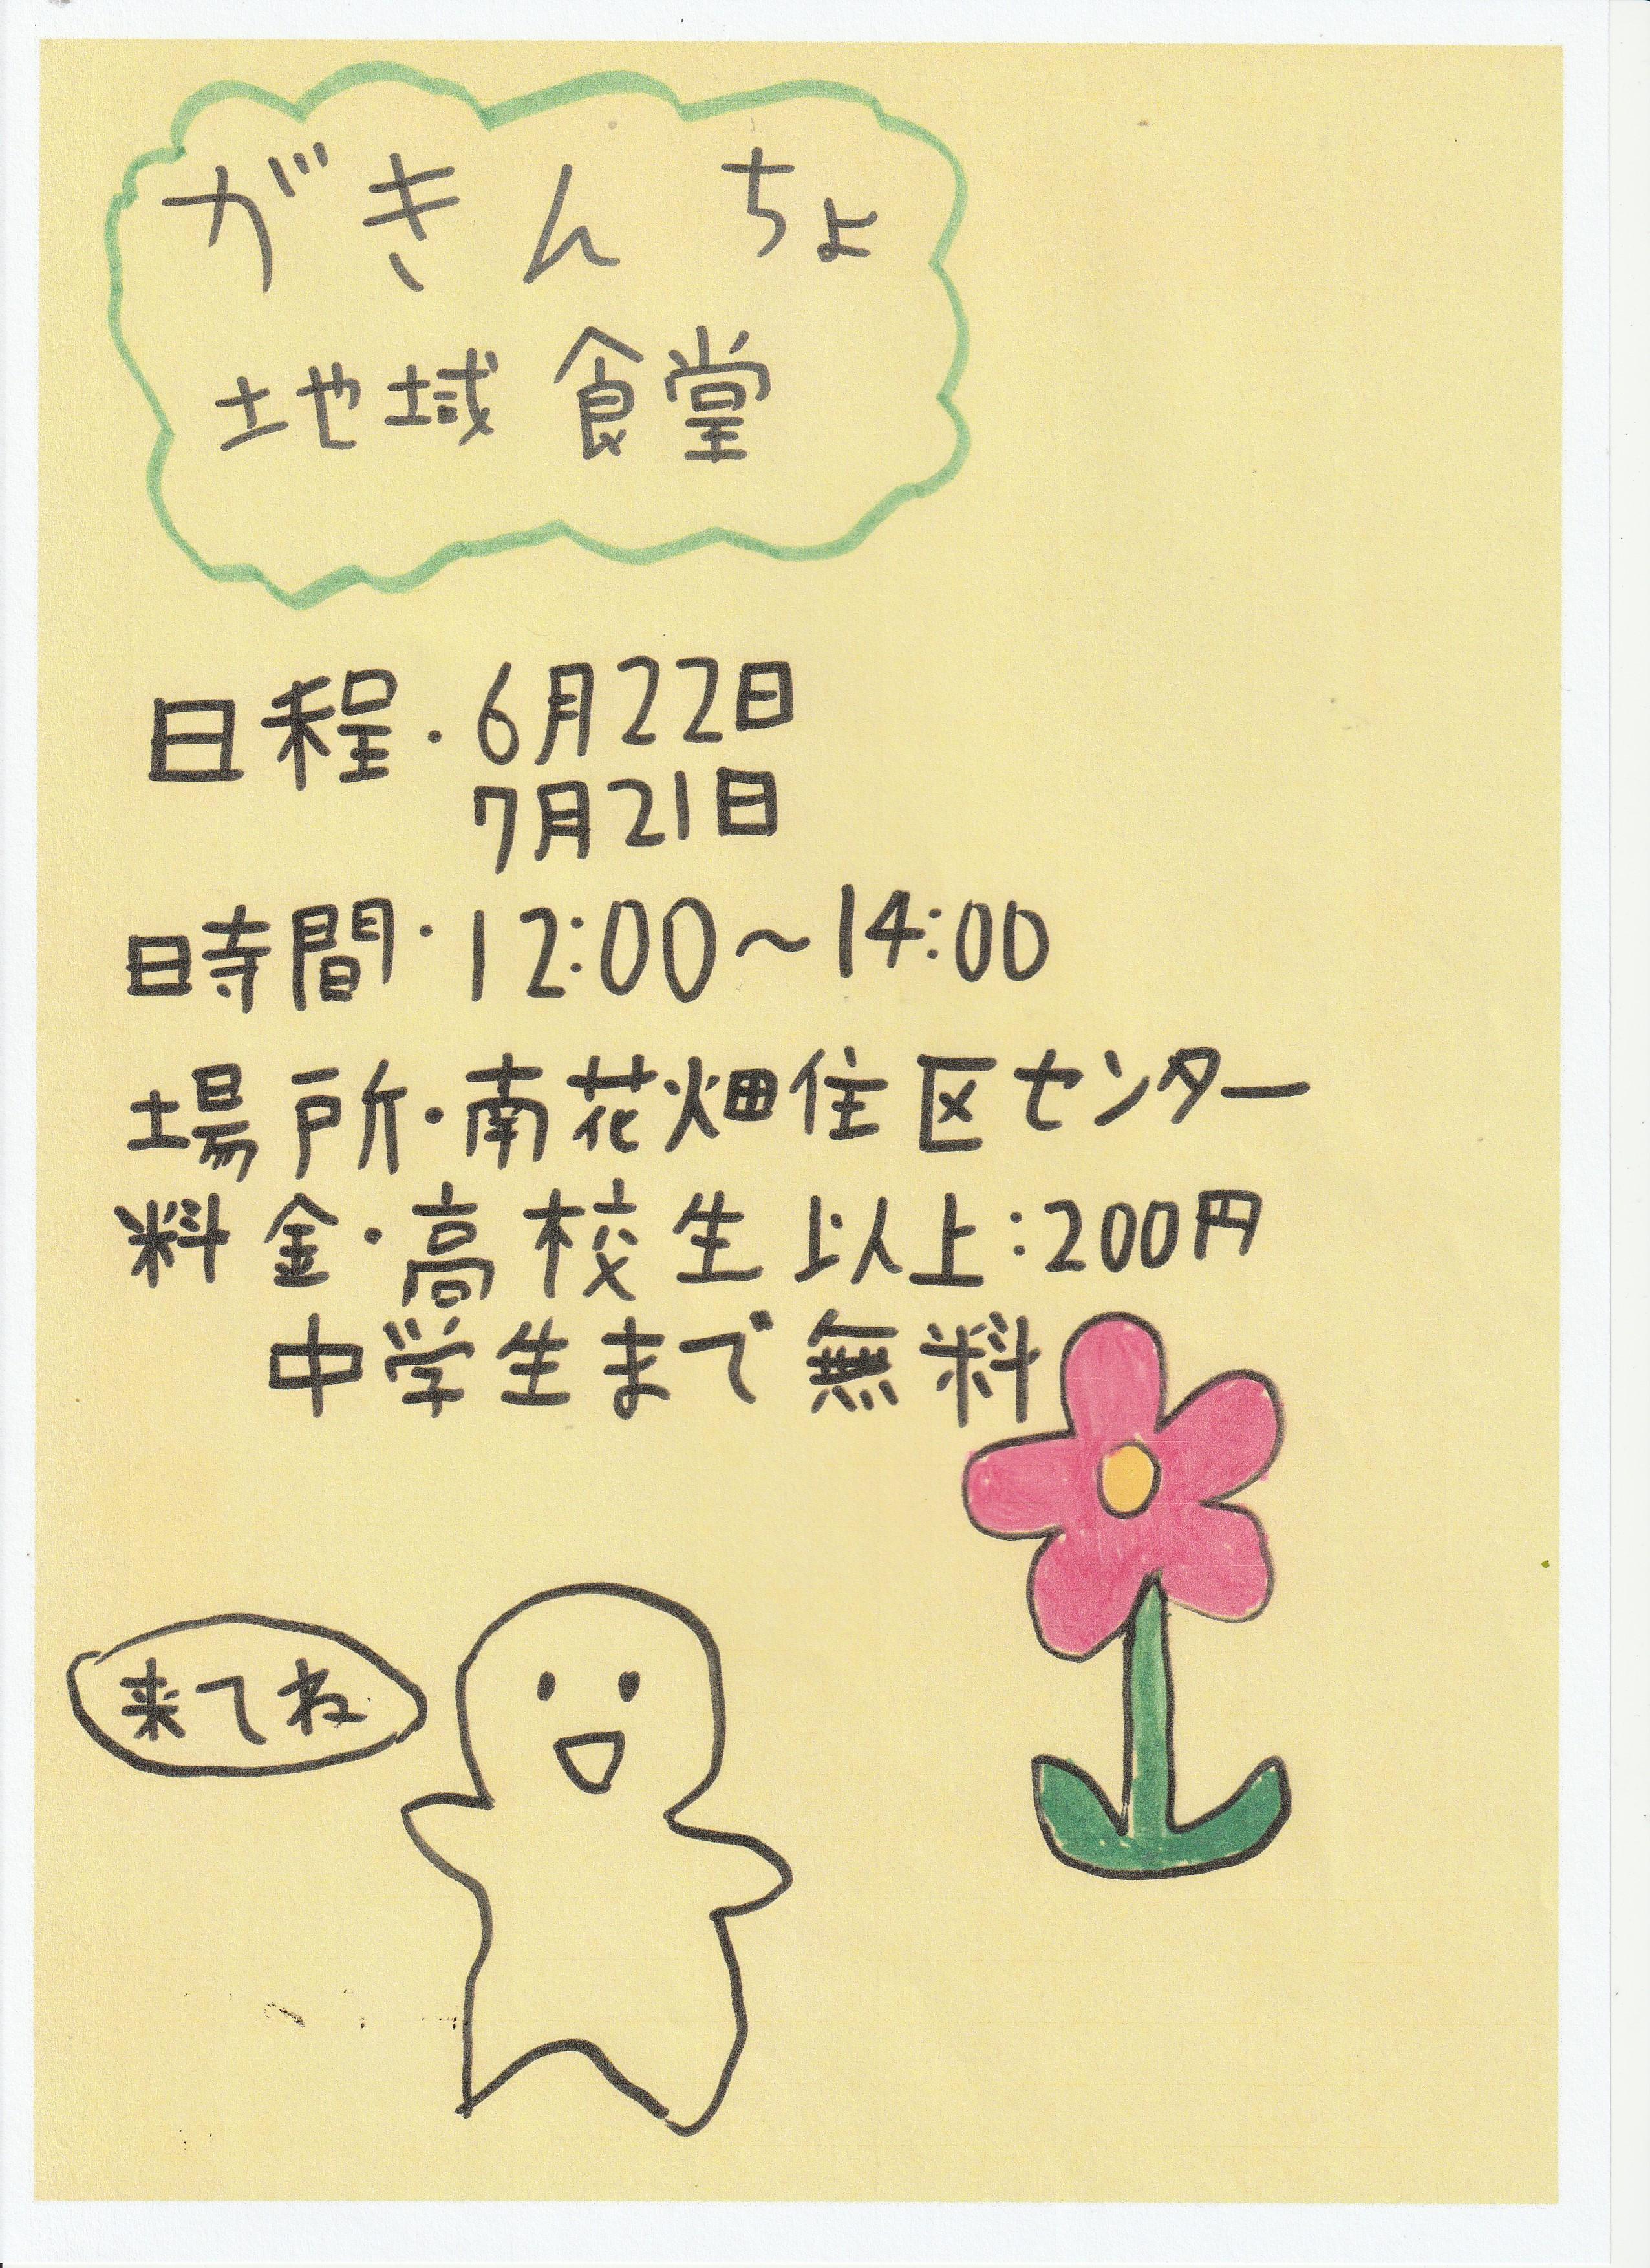 がきんちょ
地域食堂
日程・6月22日
7月21日
時間・12:00〜14:00
場所・南花畑住区センター
料金・高校生以上:200円
中学生まで無料
来てね